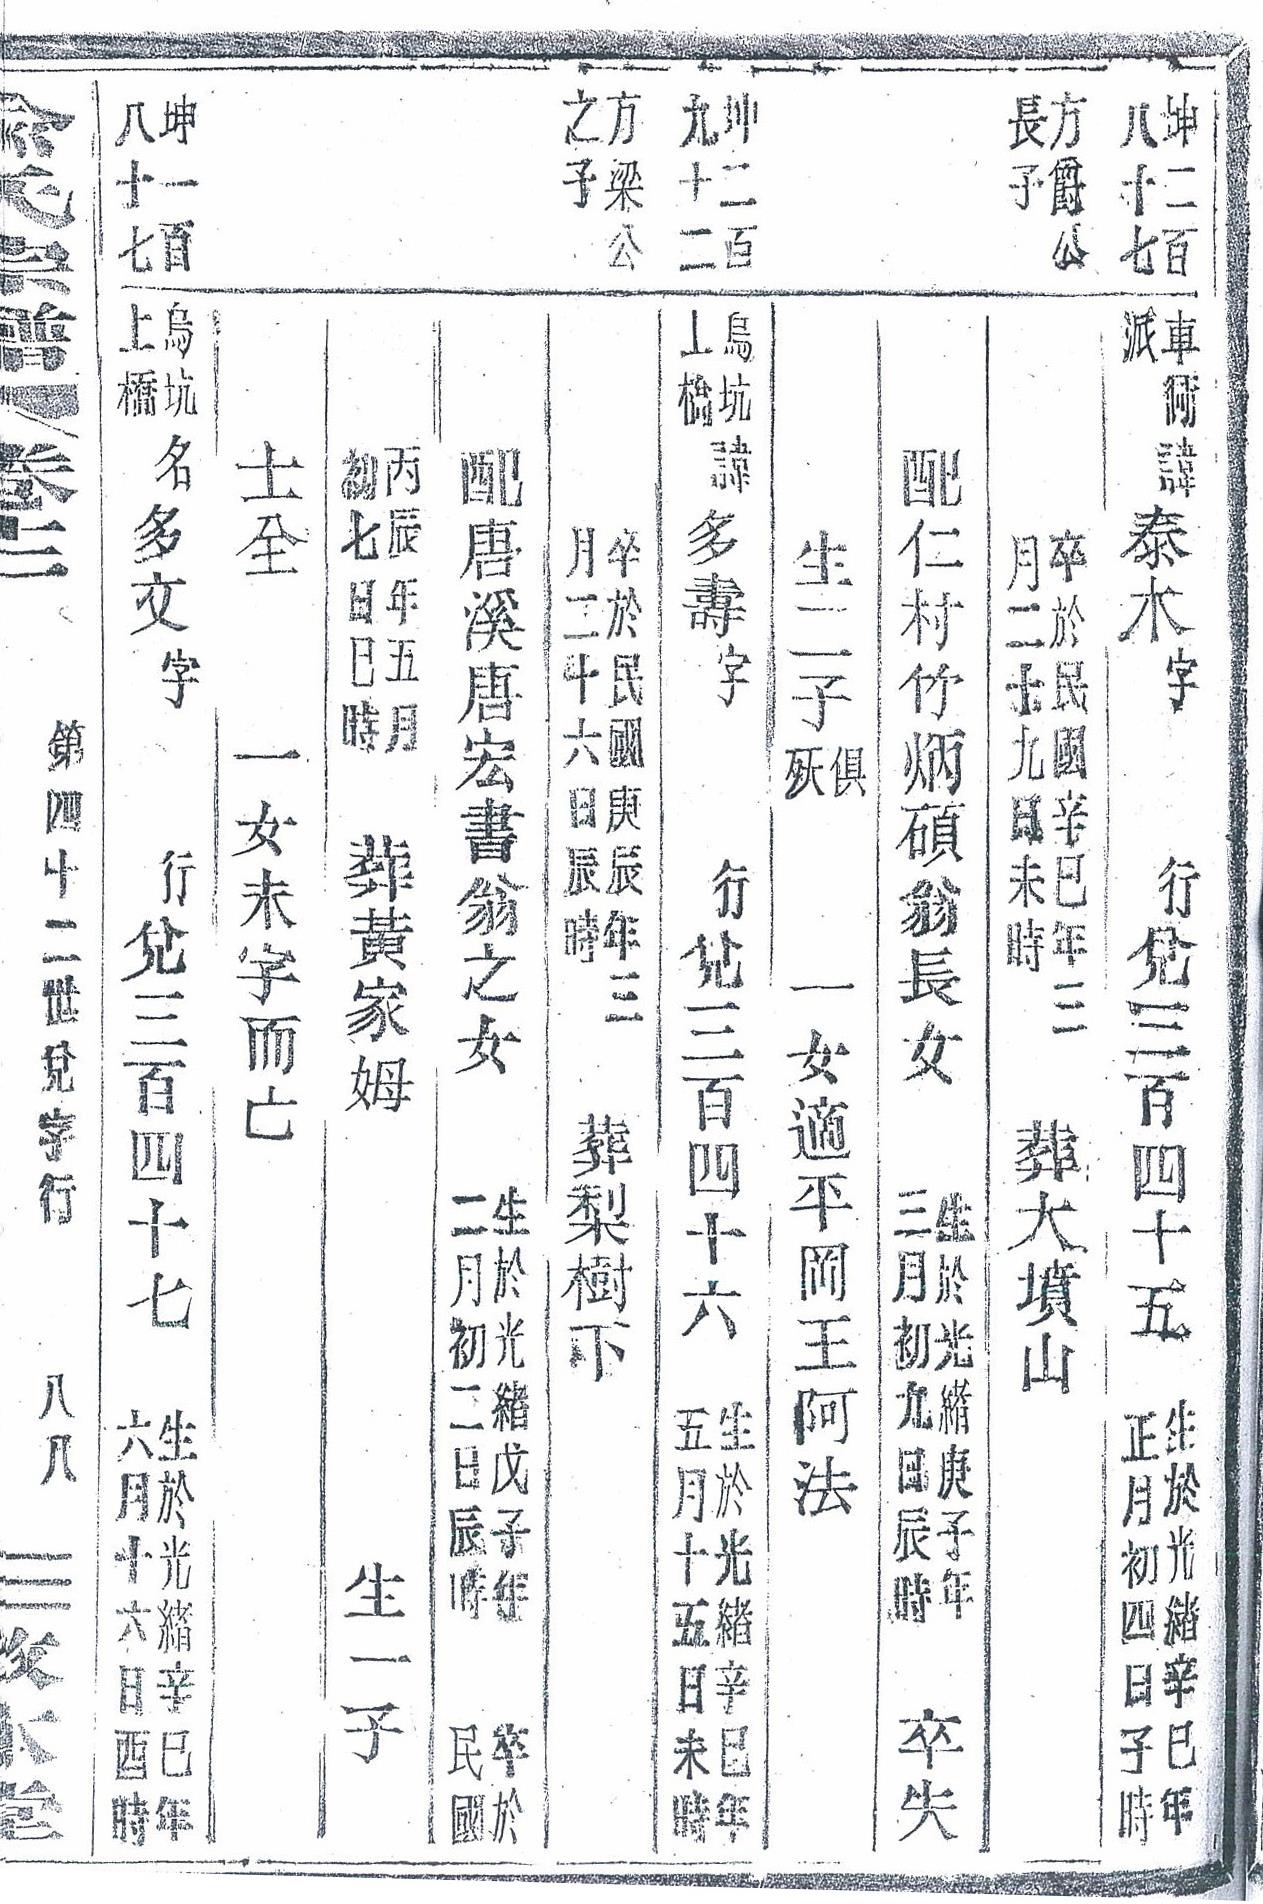 坤二百八十七
車衖派
諱泰水字 行兌三百四十五 生於光緒辛巳年正月初四日子時
方爵公長子
卒於民國辛巳年三月二十九日未時 葬大墳山
配仁村竹炳碩翁長女 生於光緒庚子年三月初九日辰時 卒失
生二子俱殀 一女適平岡王阿法
坤二百九十二
烏坑上橋
諱多壽字 行兌三百四十六 生於光緒辛巳年五月十五日未時
方梁公之子
卒於民國庚辰年三月二十六日辰時 葬梨樹下
配唐溪唐宏書翁之女 生於光緒戊子年二月初二日辰時 卒於民國
丙辰年五月初七日巳時 葬黃家姆 生一子
士全 一女未字而亡
坤一百八十七
烏坑上橋
名多文字 行兌三百四十七 生於光緒辛巳年六月十六日酉時
宗譜 卷二 第四十二世兌字行 八八 三枚堂